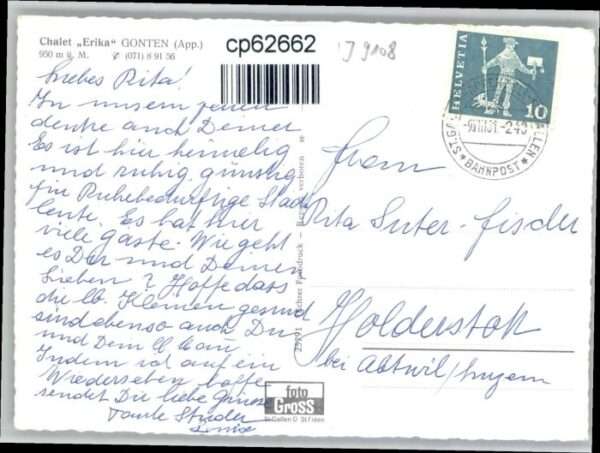 Chalet „Erika" GONTEN (App.)
950 m ü. M. ✆ (071) 8 91 56
cp62662
J 9108
HELVETIA
10
ST.GALLEN
BAHNPOST
Liebes Rita!
In unsern Ferien
denke auch Deiner
Es ist hier heimelig
und ruhig, günstig
für Ruhebedürftige Stadt
leute. Es hat hier
viele Gäste. Wie geht
es Dir und Deinen
Lieben? Hoffe dass
die lb. Kleinen gesund
sind ebenso auch Du
und Dein
Indem ich auf ein
Wiedersehen hoffe
sendet Dir liebe Grüsse
Tante Studer
Frau
Rita Suter-Fischer
Holderstock
bei Abtwil/
Fotodruck — verboten
foto
GROSS
St.Gallen O St.Fiden